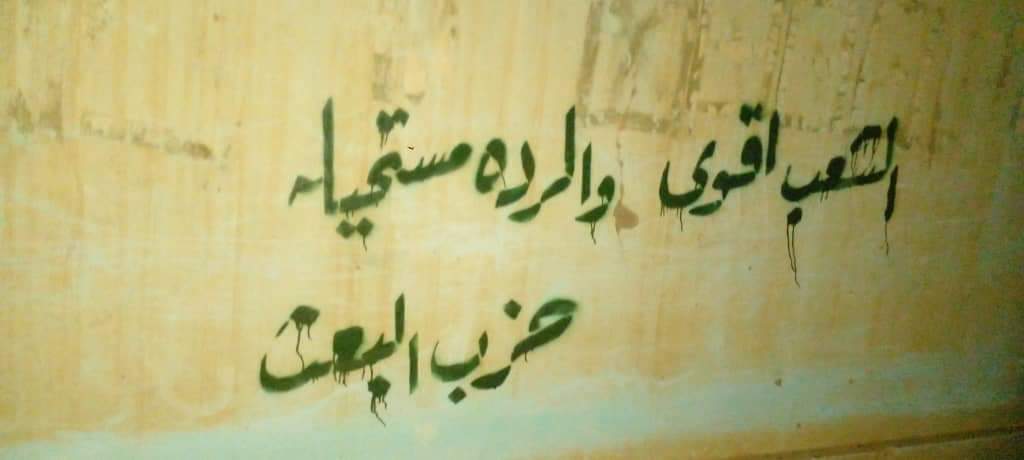 الشعب اقوى والرده مستحيله
حزب البعث